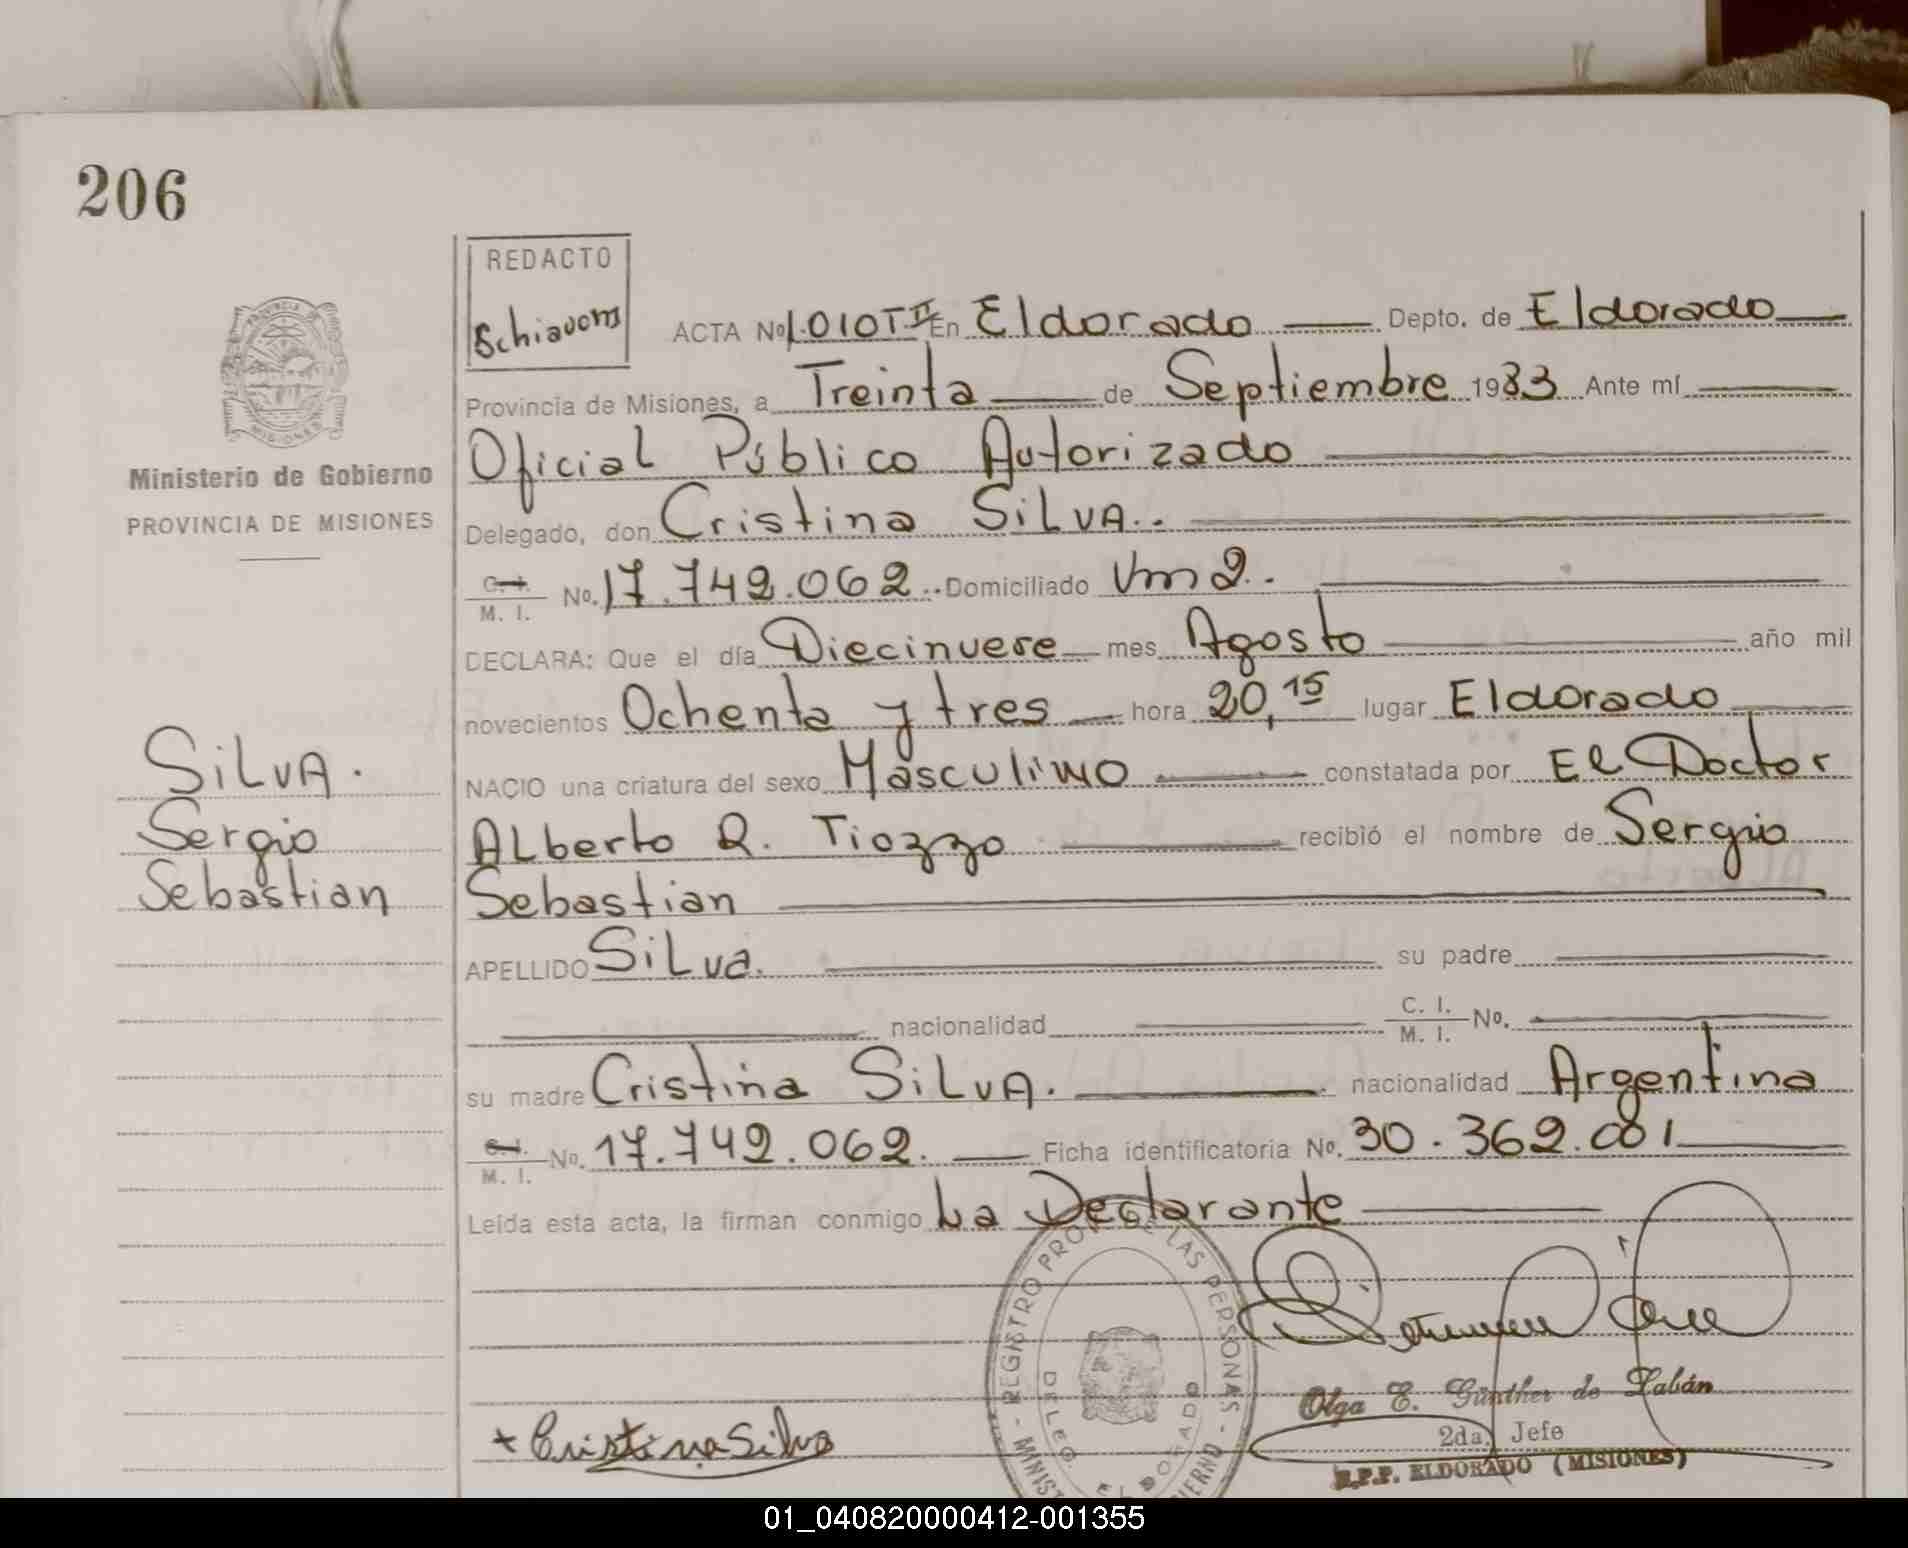 206
REDACTO
Schiavoni
ACTA No 1.010 T II En Eldorado Depto. de Eldorado
Provincia de Misiones, a Treinta de Septiembre 1983 Ante mí
Oficial Público Autorizado
Ministerio de Gobierno
PROVINCIA DE MISIONES
Delegado, don Cristina SILVA..
C. I.
M. I. No. 17.742.062.. Domiciliado Km 2.
DECLARA: Que el día Diecinueve mes Agosto año mil
novecientos Ochenta y tres hora 20,15 lugar Eldorado
NACIO una criatura del sexo Masculino constatada por El Doctor
Alberto R. Tiozzo recibió el nombre de Sergio
Sebastian
SILVA.
Sergio
Sebastian
APELLIDO Silva. su padre
nacionalidad C. I.
M. I. No.
su madre Cristina SILVA. nacionalidad Argentina
C. I.
M. I. No. 17.742.062. Ficha identificatoria No. 30.362.001
Leída esta acta, la firman conmigo La Declarante
REGISTRO PROV. DE LAS PERSONAS
DELEG. ELDORADO
+ Cristina Silva
Olga E. Günther de Zabán
2da. Jefe
R.P.P. ELDORADO (MISIONES)
01_040820000412-001355